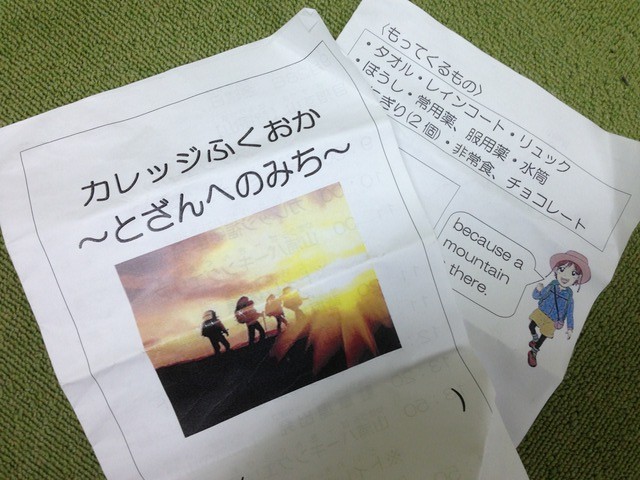 カレッジふくおか
～とざんへのみち～
〈もってくるもの〉
・タオル・レインコート・リュック
・ぼうし・常用薬、服用薬・水筒
ぎり(2個)・非常食、チョコレート
because a
mountain
there.